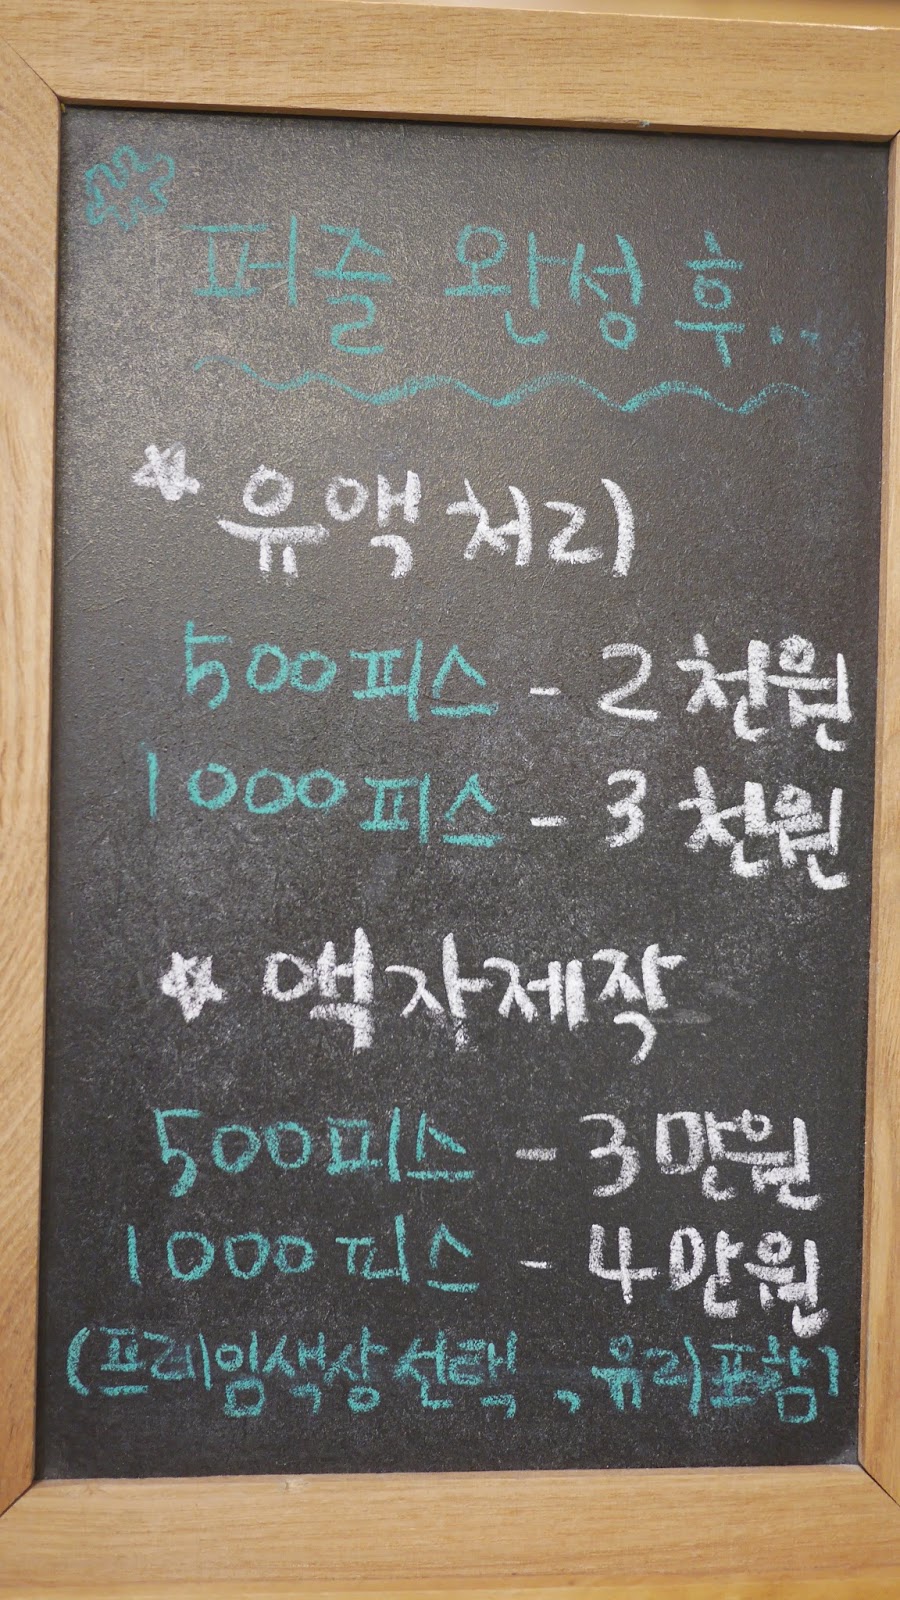 퍼즐 완성 후...
* 유액처리
500피스 - 2천원
1000피스 - 3천원
* 액자제작
500피스 - 3만원
1000피스 - 4만원
(프레임색상선택, 유리포함)